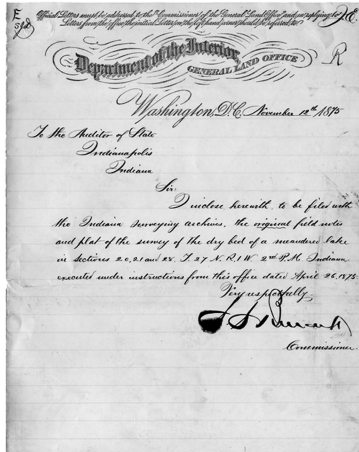 Official Letters must be addressed to the "Commissioner of the General Land Office"
Department of the Interior
GENERAL LAND OFFICE
R
Washington, D.C. November 12th 1875
To the Auditor of State
Indianapolis
Indiana
Sir:
I inclose herewith, to be filed with
the Indiana Surveying archives, the original field notes
and plat of the survey of the dry bed of a meandered lake
in sections 20, 21 and 28. T 27 N. R. 1 W. 2nd P.M. Indiana
executed under instructions from this office dated April 26, 1875.
Very respectfully,
Commissioner